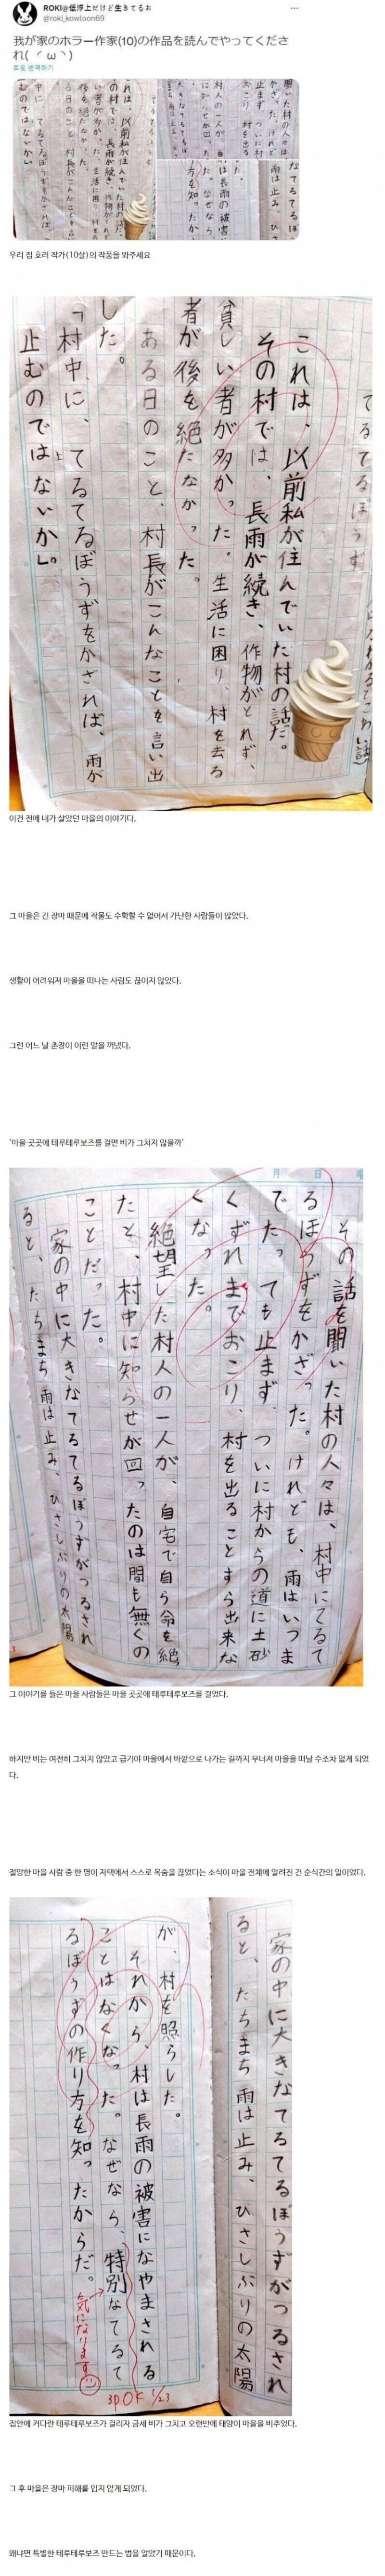 ROKI@低浮上だけど生きてるお
@roki_kowloon69
我が家のホラー作家(10)の作品を読んでやってくださ
れ( ´ω`)
트윗 번역하기
우리 집 호러 작가(10살)의 작품을 봐주세요
てるてるぼうず
これは、以前私が住んでいた村の話だ。
その村では、長雨が続き、作物がとれず、
貧しい者が多かった。生活に困り、村を去る
者が後を絶たなかった。
ある日のこと、村長がこんなことを言い出
した。
「村中に、てるてるぼうずをかざれば、雨が
止むのではないか」。
이건 전에 내가 살았던 마을의 이야기다.
그 마을은 긴 장마 때문에 작물도 수확할 수 없어서 가난한 사람들이 많았다.
생활이 어려워져 마을을 떠나는 사람도 끊이지 않았다.
그런 어느 날 촌장이 이런 말을 꺼냈다.
'마을 곳곳에 테루테루보즈를 걸면 비가 그치지 않을까'
月 日
その話を聞いた村の人々は、村中にてるて
るぼうずをかざった。けれども、雨はいつま
でたっても止まず、ついに村からの道に土砂
くずれまでおこり、村を出ることすら出来な
くなった。
絶望した村人の一人が、自宅で自ら命を絶
たと、村中に知らせが回ったのは間も無くの
ことだった。
家の中に大きなてるてるぼうずがつるされ
ると、たちまち雨は止み、ひさしぶりの太陽
그 이야기를 들은 마을 사람들은 마을 곳곳에 테루테루보즈를 걸었다.
하지만 비는 여전히 그치지 않았고 급기야 마을에서 바깥으로 나가는 길까지 무너져 마을을 떠날 수조차 없게 되었
다.
절망한 마을 사람 중 한 명이 자택에서 스스로 목숨을 끊었다는 소식이 마을 전체에 알려진 건 순식간의 일이었다.
家の中に大きなてるてるぼうずがつるされ
ると、たちまち雨は止み、ひさしぶりの太陽
が、村を照らした。
それから、村は長雨の被害になやまされる
ことはなくなった。なぜなら、特別なてるて
るぼうずの作り方を知ったからだ。
気になります
3P OK 1/23
집안에 커다란 테루테루보즈가 걸리자 금세 비가 그치고 오랜만에 태양이 마을을 비추었다.
그 후 마을은 장마 피해를 입지 않게 되었다.
왜냐면 특별한 테루테루보즈 만드는 법을 알았기 때문이다.